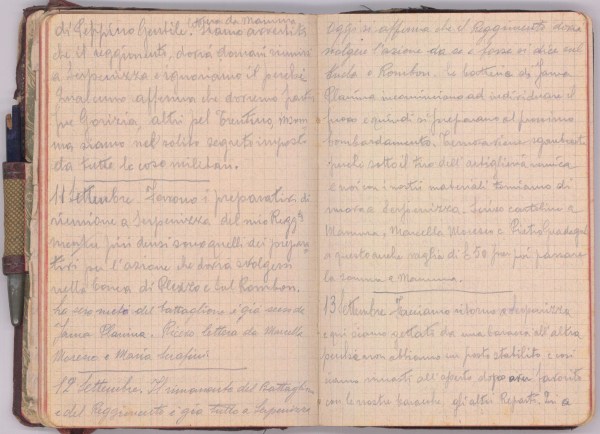 di Peppino Gentile. Siamo avvertiti
lettera da Mamma
che il reggimento, dovrà domani riunirsi
a Serpenizza e ignoriamo il perché
Qualcuno afferma che dovremo partire
per Gorizia, altri pel Trentino, insom
ma siamo nel solito segreto imposto
da tutte le cose militari.
11 Settembre. Fervono i preparativi di
riunione a Serpenizza del mio Regg.to
mentre più densi sono quelli dei prepara
tivi per l'azione che dovrà svolgersi
nella conca di Plezzo e sul Rombon.
La sera metà del battaglione è già scesa da
Jama Planina. Ricevo lettera da Marcello
Moreno e Maria Serafini.
12 Settembre. Il rimanente del Battaglione
e del Reggimento è già tutto a Serpenizza
Oggi si afferma che il Reggimento dovrà
svolgere l'azione da se e forse si dice sul
Rombon. La batteria di Jama
Planina incominciano ad individuare il
fuoco e quindi si preparano al prossimo
bombardamento. Ternova viene sgomberata
perché sotto il tiro dell'artiglieria nemica
e noi con i nostri materiali torniamo di
nuovo a Serpenizza. Scrivo cartoline a
Mamma, Marcella Moreno e Pietro
a questo anche vaglia di £ 50 per poi passarle
la somma a Mamma.
13 Settembre Facciamo ritorno a Serpenizza
e qui siamo gettati da una baracca all'altra
perché non abbiamo un posto stabilito, e così
siamo rimasti all'aperto dopo aver favorito
con le nostre baracche gli altri Reparti. Di a